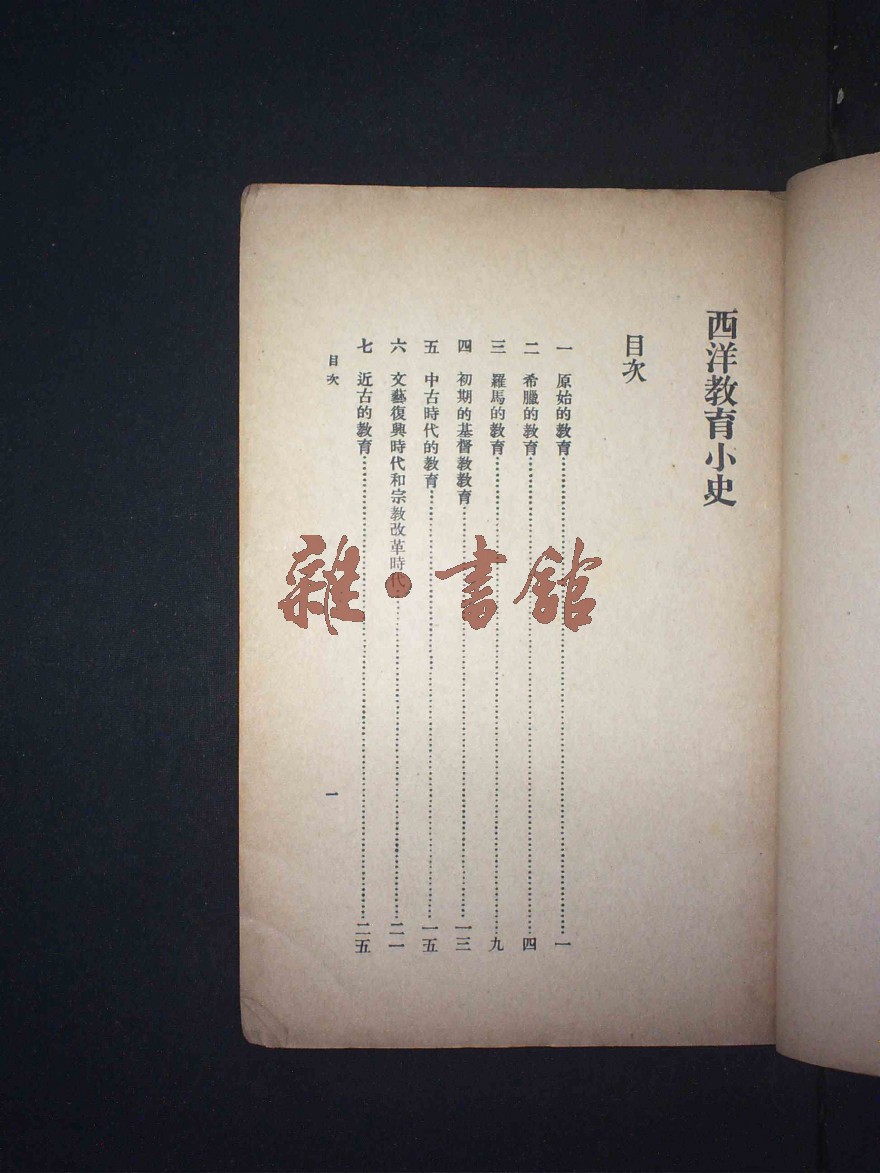 西洋教育小史
目次
一 原始的教育……一
二 希臘的教育……四
三 羅馬的教育……九
四 初期的基督教教育……一三
五 中古時代的教育……一五
六 文藝復興時代和宗教改革時代……二一
七 近古的教育……二五
目次
一
雜·書館